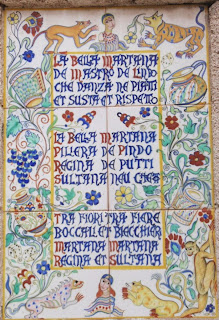 LA BELLA MARTANA
DE MASTRO DE LINO
CHE DANZA NE PIATTI
ET SUSTA ET RISPETTO
LA BELLA MARTANA
PILLERA DE PINDO
REGINA DE PUTTI
SULTANA NEU
TRA FIORI TRA FIERE
BOCCAL ET BICCHIER
MARTANA MARTANA
REGINA ET SULTANA